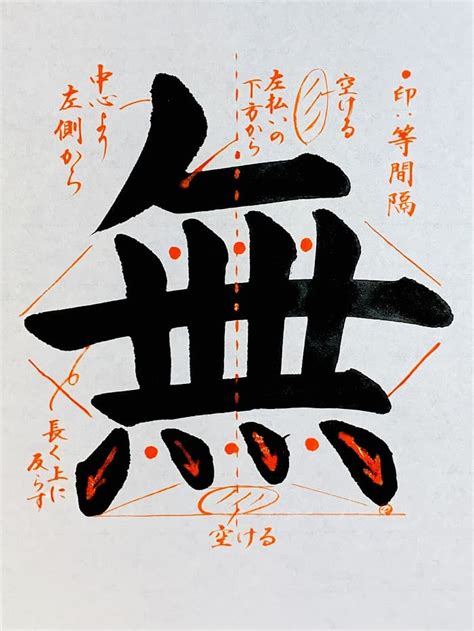 ●印は等間隔
空ける
左払いの
下方から
中心より
左側から
無
長く上に
反らす
空ける